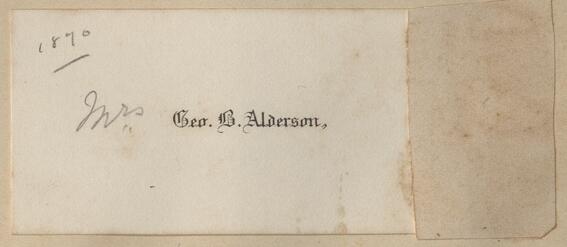 1870
Mrs Geo. B. Alderson,